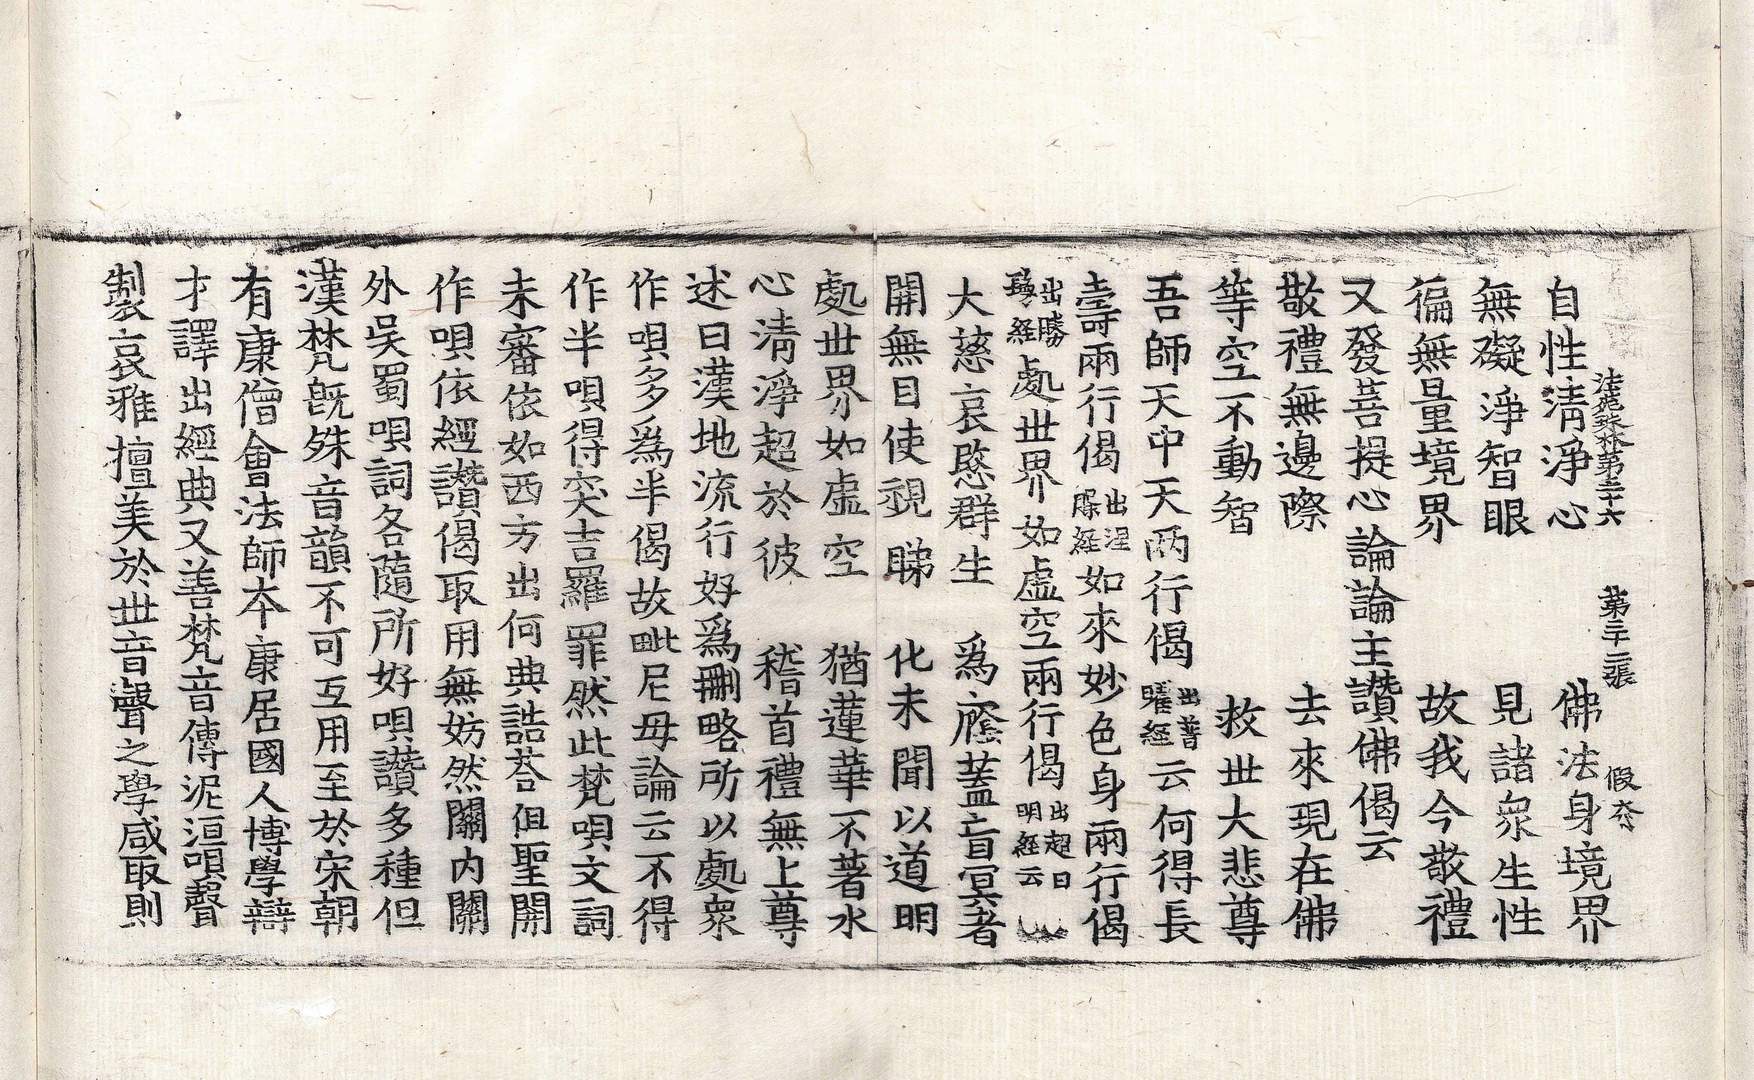 法苑珠林第三十六 第三十二張 假夲
自性清淨心 佛法身境界
無礙淨智眼 見諸衆生性
徧無量境界 故我今敬禮
又發菩提心論論主讃佛偈云
敬禮無邊際 去來現在佛
等空不動智 救世大悲尊
吾師天中天兩行偈出普曜經云何得長
壽兩行偈出涅槃経如來妙色身兩行偈
出勝鬘経處世界如虛空兩行偈出超日明經云
大慈哀愍群生 爲廕蓋盲冥者
開無目使視睇 化未聞以道明
處世界如虛空 猶蓮華不著水
心清淨超於彼 稽首禮無上尊
述曰漢地流行好爲刪略所以處衆
作唄多爲半偈故毗尼毋論云不得
作半唄得突吉羅罪然此梵唄文詞
未審依如西方出何典誥荅但聖開
作唄依經讃偈取用無妨然關內關
外吳蜀唄詞各隨所好唄讃多種但
漢梵旣殊音韻不可互用至於宋朝
有康僧會法師夲康居國人博學辯
才譯出經典又善梵音傳泥洹唄聲
製哀雅擅美於世音聲之學咸取則